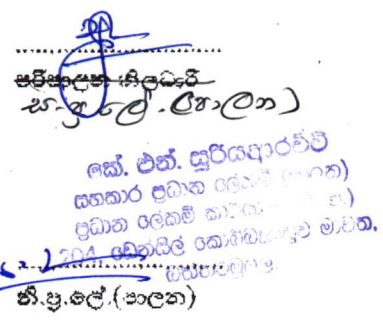 පරිපාලන නිලධාරී
ස.ප්‍ර.ලේ. (පාලන)
කේ. එන්. සූරියආරච්චි
සහකාර ප්‍රධාන ලේකම් (පාලන)
ප්‍රධාන ලේකම්
204, ඩෙන්සිල් කොබ්බෑකඩුව මාවත,
බත්තරමුල්ල.
නි.ප්‍ර.ලේ.(පාලන)